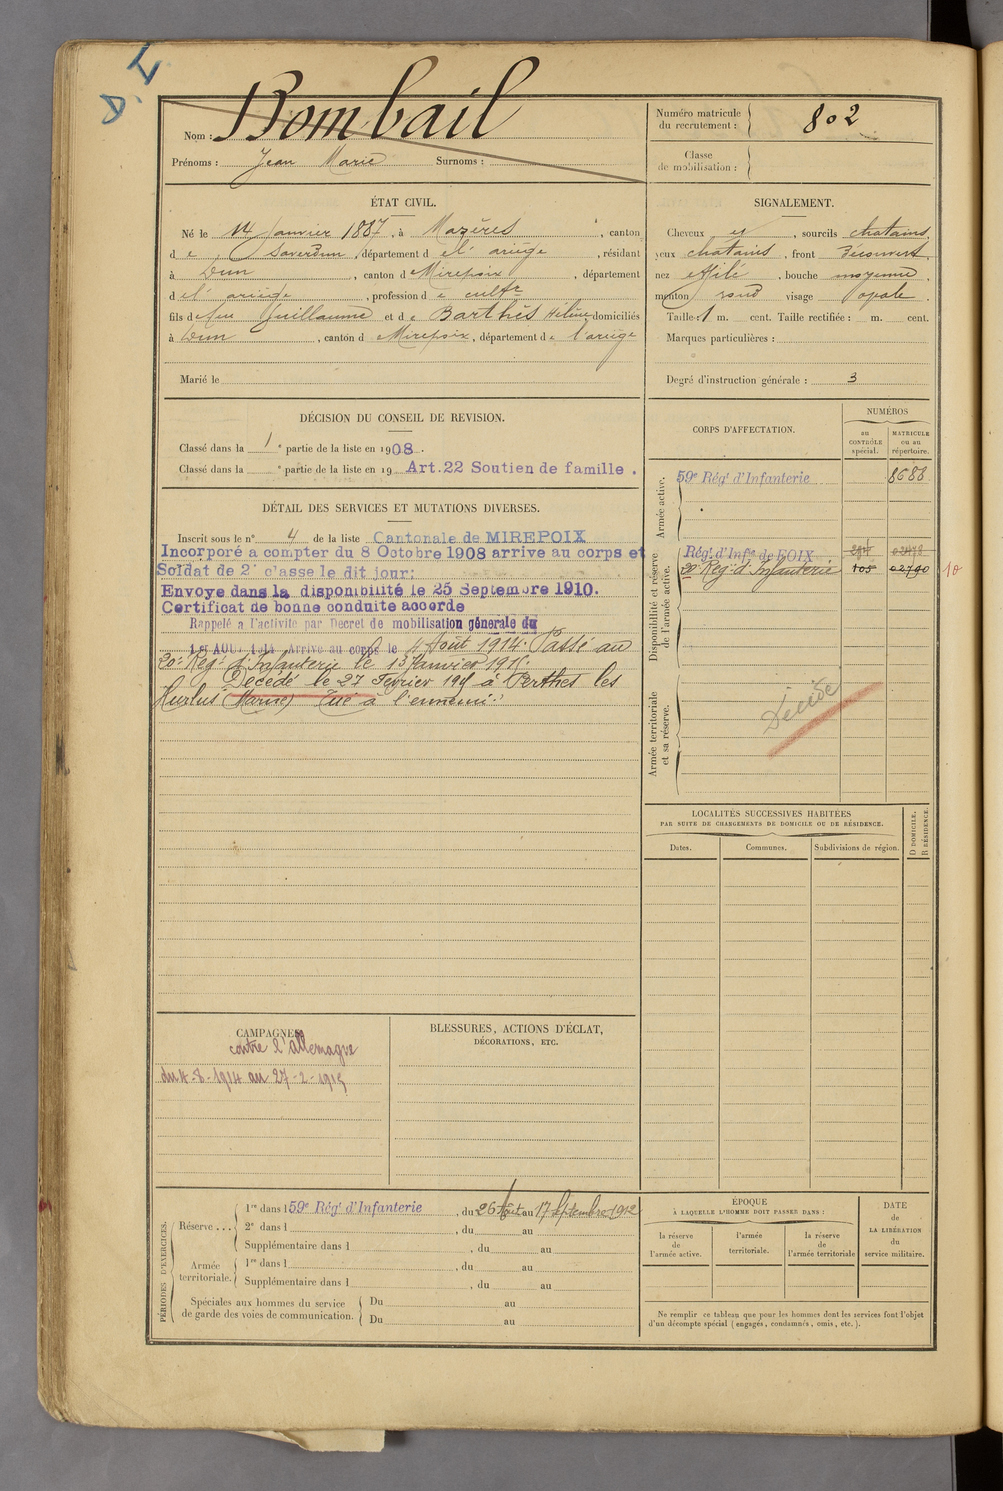 Nom : Bombail
Prénoms : Jean Marie Surnoms :
Numéro matricule du recrutement : 802
Classe de mobilisation :
ÉTAT CIVIL.
Né le 14 Janvier 1887, à Mazères, canton
de Saverdun, département de l'ariège, résidant
à Dun, canton de Mirepoix, département
de l'ariège, profession de cultr
fils de feu Guillaume et de Barthès Hélène domiciliés
à Dun, canton d Mirepoix, département de l'ariège
Marié le
SIGNALEMENT.
Cheveux et, sourcils chatains,
yeux chatains, front découvert,
nez effilé, bouche moyenne,
menton rond visage opale.
Taille : 1 m. cent. Taille rectifiée : m. cent.
Marques particulières :
Degré d'instruction générale : 3
DÉCISION DU CONSEIL DE REVISION.
Classé dans la 1 e partie de la liste en 1908.
Classé dans la e partie de la liste en 19 Art.22 Soutien de famille.
DÉTAIL DES SERVICES ET MUTATIONS DIVERSES.
Inscrit sous le n° 4 de la liste Cantonale de MIREPOIX
Incorporé a compter du 8 Octobre 1908 arrive au corps et
Soldat de 2e c'asse le dit jour:
Envoye dans la disponibilité le 25 Septembre 1910.
Certificat de bonne conduite accorde
Rappelé a l'activite par Decret de mobilisation générale du
1er AOU. 1914 Arrive au corps le 4 Août 1914. Passé au
20e Rég. d'Infanterie le 13 Janvier 1915.
Décédé le 27 Février 1915 à Perthes les
Hurlus (Marne) "Tué à l'ennemi"
CORPS D'AFFECTATION.
NUMÉROS
au CONTRÔLE spécial.
MATRICULE ou au répertoire.
Armée active.
59e Rég. d'Infanterie 8688
Disponibilité et réserve de l'armée active.
Rég. d'Infie de FOIX
20e Reg. d'Infanterie 105 02790 10
Armée territoriale et sa réserve.
Décédé
LOCALITÉS SUCCESSIVES HABITÉES
PAR SUITE DE CHANGEMENTS DE DOMICILE OU DE RÉSIDENCE.
Dates. Communes. Subdivisions de région.
D DOMICILE. R RÉSIDENCE.
CAMPAGNES.
contre l'allemagne
du 4-8-1914 au 27-2-1915
BLESSURES, ACTIONS D'ÉCLAT,
DÉCORATIONS, ETC.
PÉRIODES D'EXERCICES.
Réserve ...
1re dans l 59e Rég. d'Infanterie, du 26 Août au 17 Septembre 1912
2e dans l, du au
Supplémentaire dans l, du au
Armée territoriale.
1re dans l, du au
Supplémentaire dans l, du au
Spéciales aux hommes du service
de garde des voies de communication.
Du au
Du au
ÉPOQUE
À LAQUELLE L'HOMME DOIT PASSER DANS :
la réserve de l'armée active.
l'armée territoriale.
la réserve de l'armée territoriale
DATE de LA LIBÉRATION du service militaire.
Ne remplir ce tableau que pour les hommes dont les services font l'objet
d'un décompte spécial (engagés, condamnés, omis, etc.).